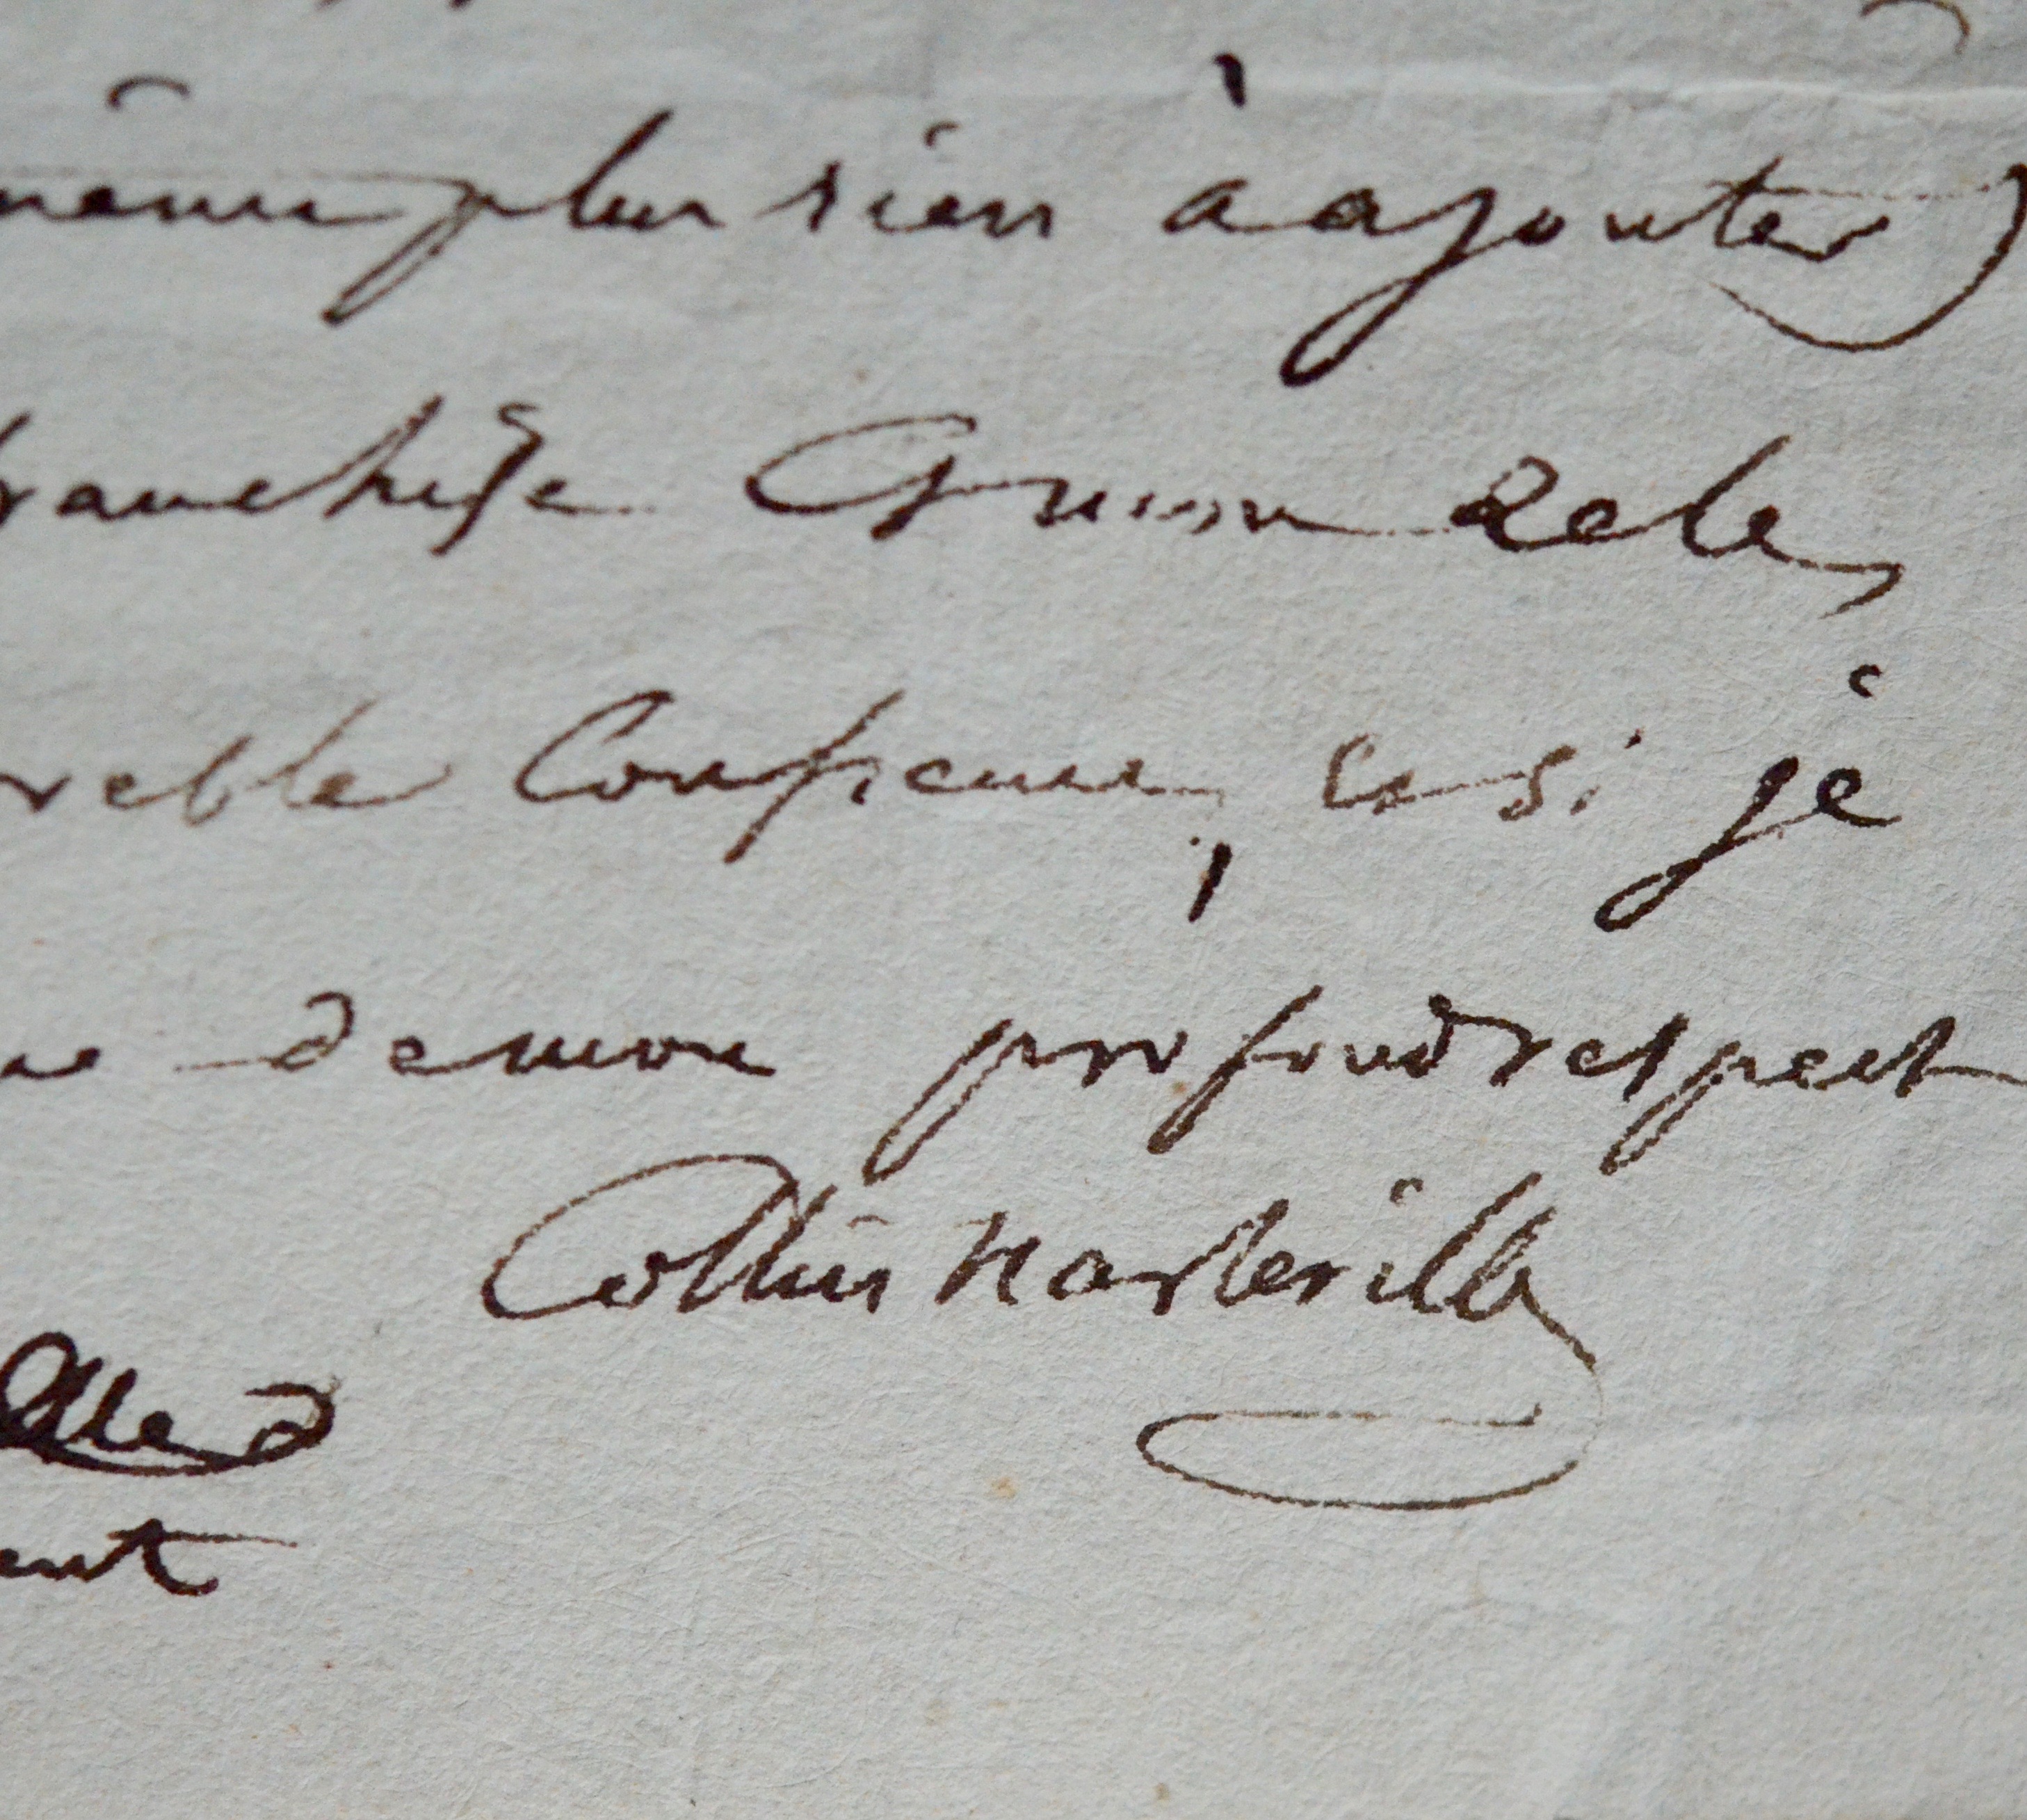 même plus rien à ajouter)
franchise & mon zele,
Confiance, et si je
de mon profond respect
Collin Harleville
ent